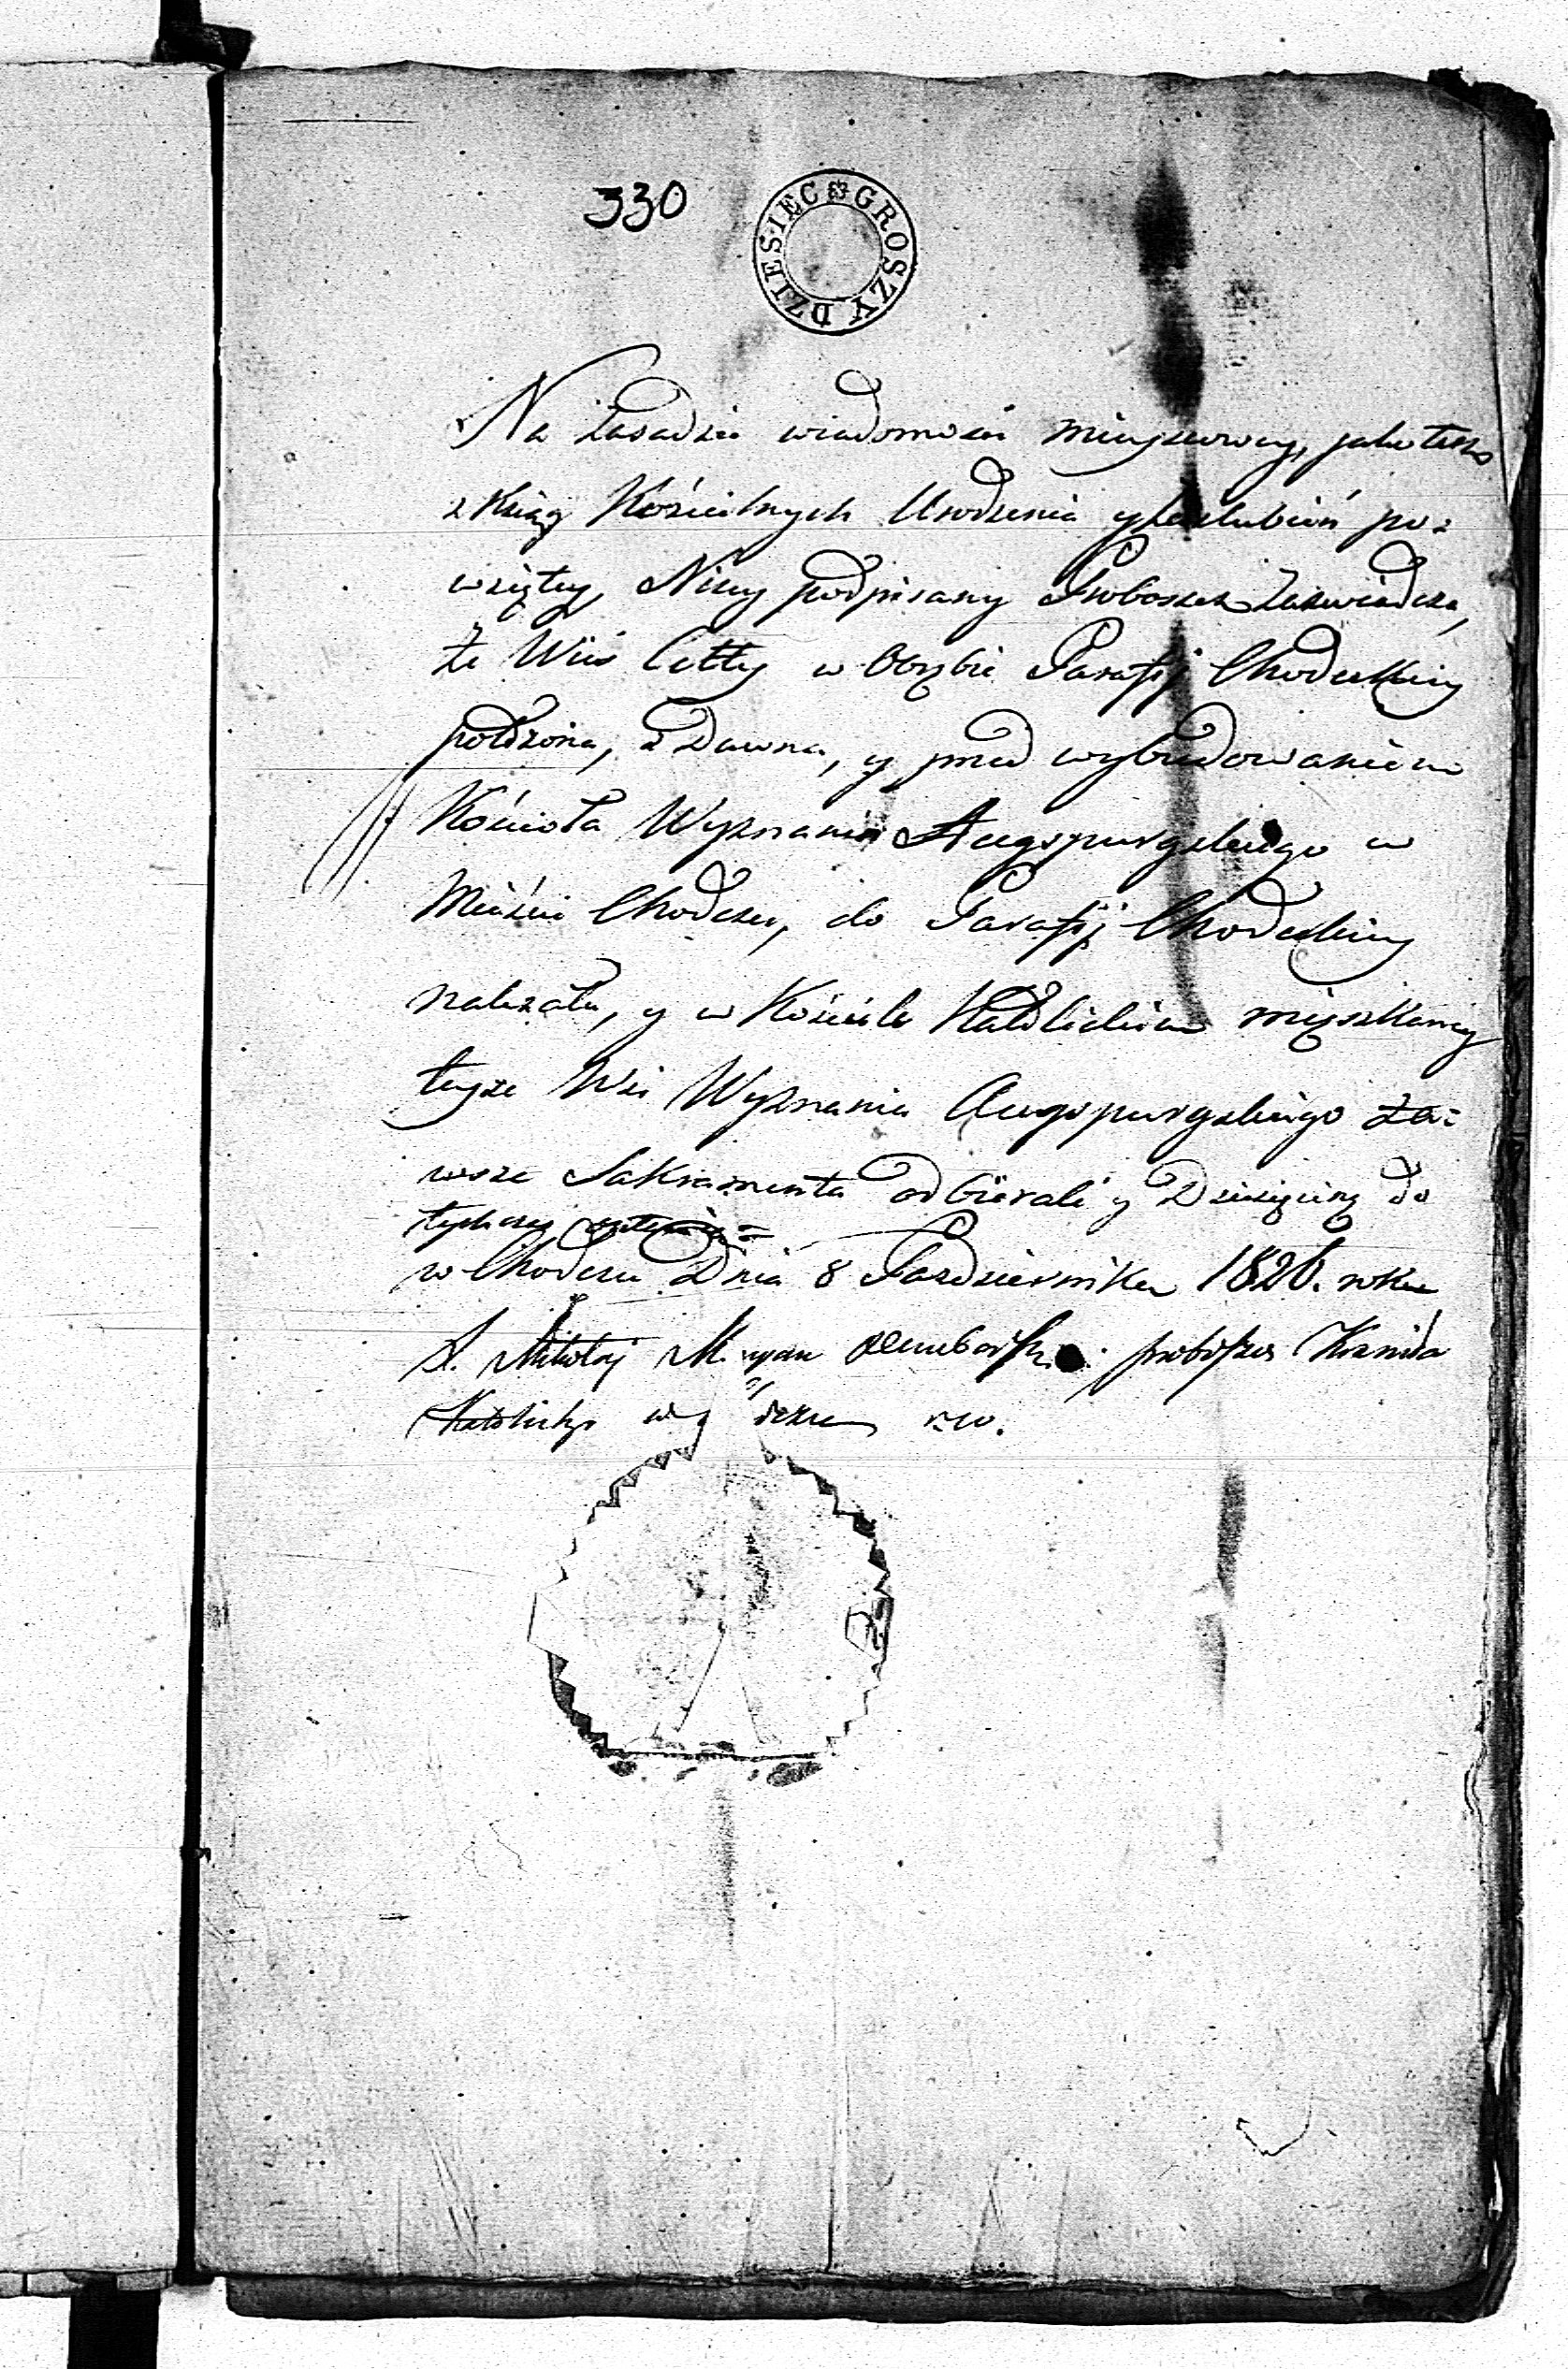 330
DZIESIĘC GROSZY
Na zasadzie wiadomości mieyscowey, jako też
z Ksiąg Kościelnych Urodzenia y Zaślubień po=
wziętey, Niżey podpisany Proboszcz Zaświadcza,
że Wieś Cetty w Obrębie Parafij Chodeckiey
położona, z Dawna, y przed wybudowaniem
Kościoła Wyznania Augspurgskiego w
Mieście Chodczu, do Parafij Chodeckiey
należała, y w Kościele Katolickim mięszkańcy
teyże Wsi Wyznania Augspurgskiego za=
wsze Sakramenta odbierali y Dziesięcinę do
tychczas
w Chodczu Dnia 8 Października 1826. roku
X. Mikołaj proboszcz Kościoła
Katolickiego w